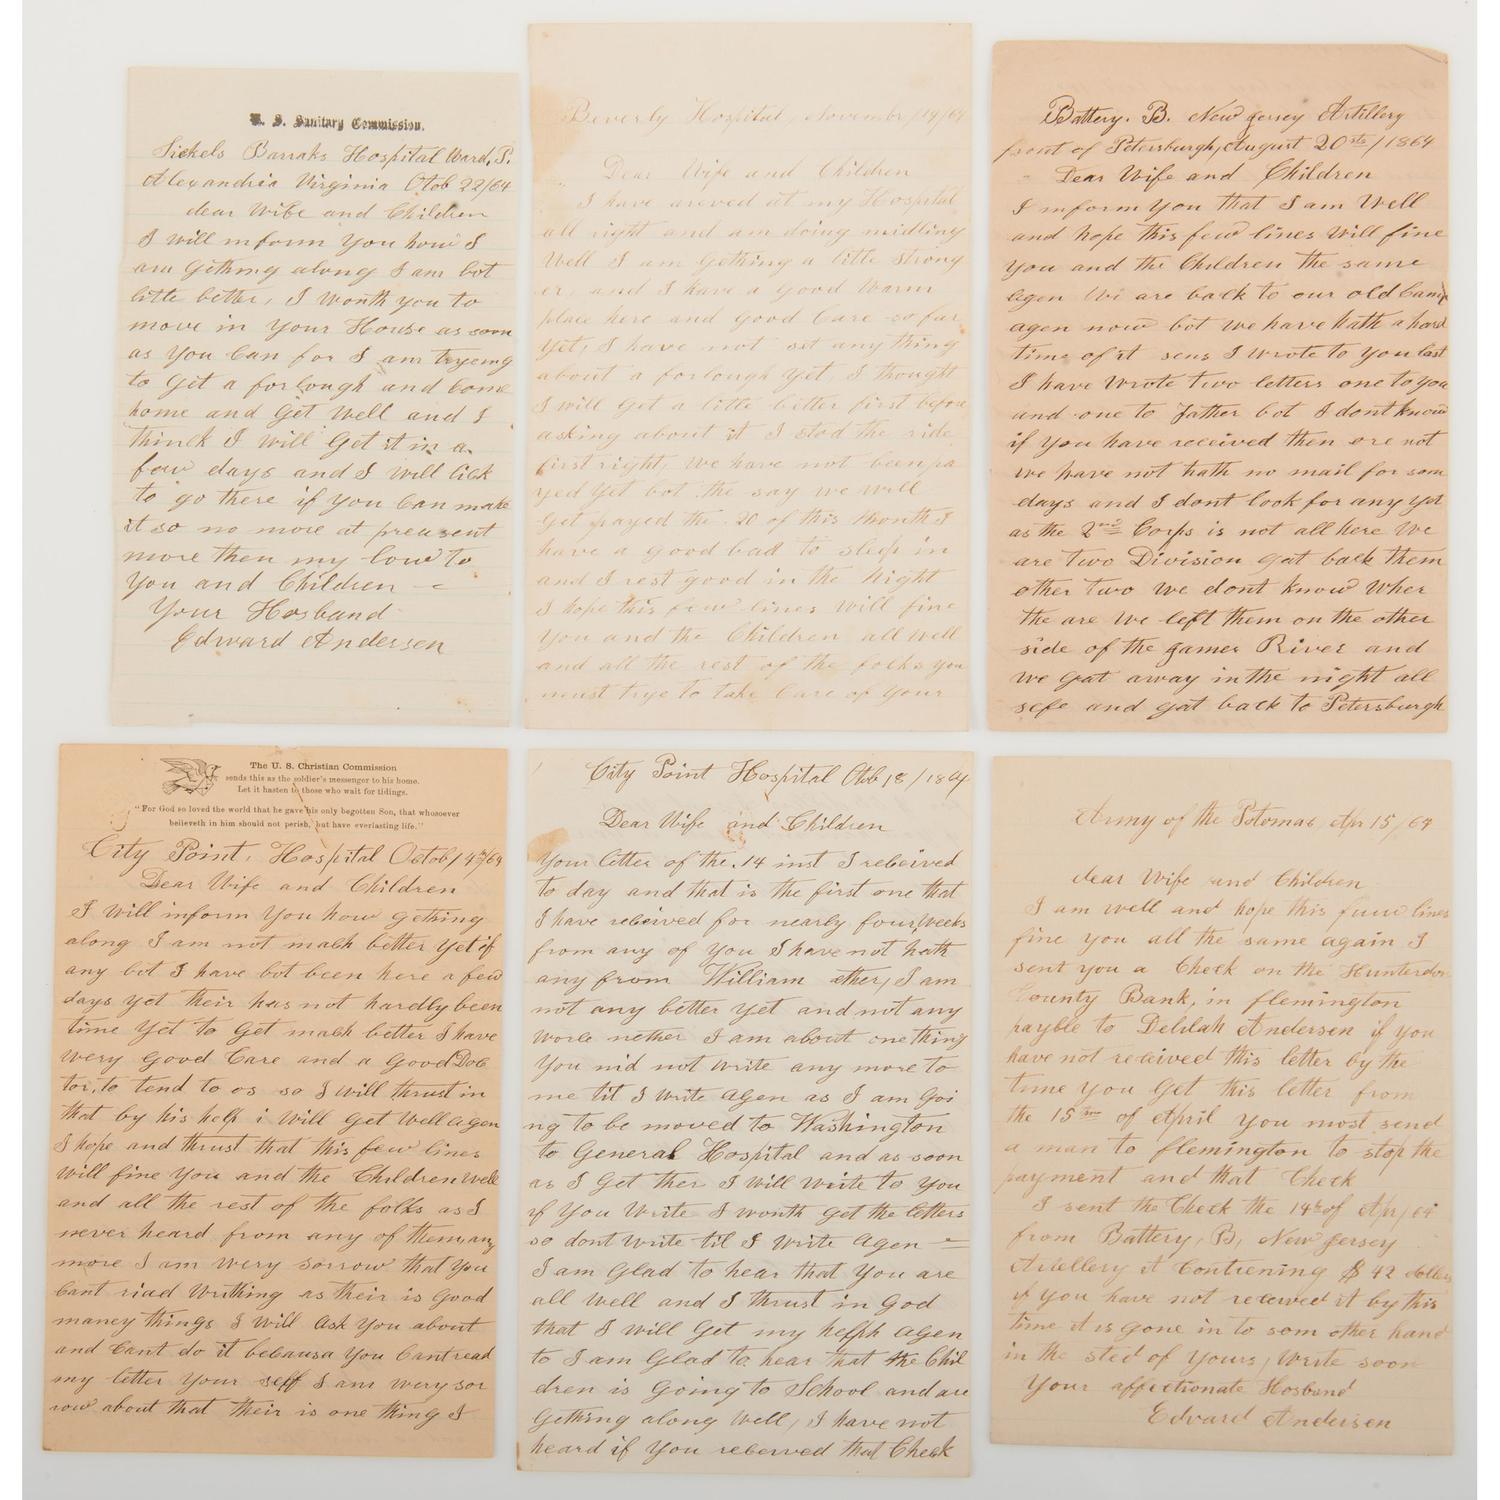 U. S. Sanitary Commission.
Sickels Barraks Hospital Ward, P.
Alexandria Virginia Octob 22/64
dear Wife and Children
I will inform you how I
am gething along I am bot
litle better, I wonth you to
move in your House as soon
as you Can for I am tryeing
to git a forlough and Come
home and Get well and I
thinck I will Get it in a
few days and I will lick
to go there if you Can make
it so no more at preasent
more then my love to
you and Children
Your Hosband
Edward Andersen
Beverly Hospital, November 19/64
Dear Wife and Children
I have areved at my Hospital
all right and am doing midling
Well I am Gething a litle Strong
er, and I have a Good Warm
place here and Good Care so far
yet, I have not set any thing
about a forlough yet I thought
I will Get a litle better first before
asking about it I stod the ride
first right, we have not been pa
yed yet bot the say we will
Get payed the 20 of this Month I
have a good bad to sleep in
and I rest good in the Night
I hope this few lines will fine
you and the Children all well
and all the rest of the folks you
must trye to take Care of your
Battery. B. New Jersey Artillery
front of Petersburgh, August 20sts/1864
Dear Wife and Children
I inform you that I am Well
and hope this few lines will fine
you and the Children the same
agen We are back to our old Camp
agen now bot we have hath a hard
time of it sens I wrote to you last
I have wrote two letters one to you
and one to Father bot I dont know
if you have received then ore not
we have not hath no mail for som
days and I dont look for any yet
as the 2nd Corps is not all here We
are two Division gat back them
other two we dont know wher
the are we left them on the other
side of the James River and
we gat away in the night all
sefe and gat back to Petersburgh
The U. S. Christian Commission
sends this as the soldier's messenger to his home.
Let it hasten to those who wait for tidings.
"For God so loved the world that he gave his only begotten Son, that whosoever
believeth in him should not perish, but have everlasting life."
City Point. Hospital Octob 14th/64
Dear Wife and Children
I will inform you how gething
along I am not mach better yet if
any bot I have bot been here a few
days yet their has not hardly been
time yet to get mach better I have
wery good Care and a Good Doc
tor, to tend to os so I will thrust in
that by his help i will get well agen
I hope and thrust that this few lines
will fine you and the Children well
and all the rest of the folks as I
never heard from any of them any
more I am wery sorrow that you
Cant riad writhing as their is Good
maney things I will ask you about
and Cant do it becausa you Cant read
my letter your self I am wery sor
row about that their is one thing I
City Point Hospital Octob 18/1864
Dear Wife and Children
Your letter of the 14 inst I received
to day and that is the first one that
I have received for nearly four weeks
from any of you I have not hath
any from William ether, I am
not any better yet and not any
worse nether I am about one thing
you nid not write any more to
me til I write agen as I am Goi
ng to be moved to Washington
to General Hospital and as soon
as I get ther I will write to you
if you write I wonth get the letters
so dont write til I write agen
I am Glad to hear that you are
all well and I thrust in God
that I will get my helph agen
to I am Glad to hear that the Chil
dren is Going to School and are
Gething along Well, I have not
heard if you recerved that Check
Army of the Potomac, Apr 15/64
dear Wife and Children
I am well and hope this fuw lines
fine you all the same again I
sent you a Check on the Hunterdon
County Bank, in flemington
payble to Delilah Andersen if you
have not received this letter by the
time you get this letter from
the 15 of April you most send
a man to flemington to stop the
payment and that Check
I sent the Check the 14th of Apr/64
from Battery, B, New Jersey
Artellery it Contiening $ 42 dollers
if you have not recerved it by this
time it is gone in to som other hand
in the sted of yours, Write soon
Your affectionate Hosband
Edvard Andersen